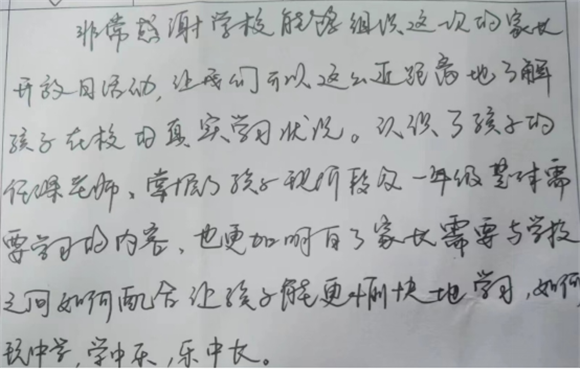 非常感谢学校能够组织这次的家长
开放日活动,让我们可以这么近距离地了解
孩子在校的真实学习状况。认识了孩子的
任课老师、掌握了孩子现阶段及一年级整体需
要学习的内容,也更加明白了家长需要与学校
之间如何配合让孩子能更愉快地学习,如何
玩中学,学中乐,乐中长。